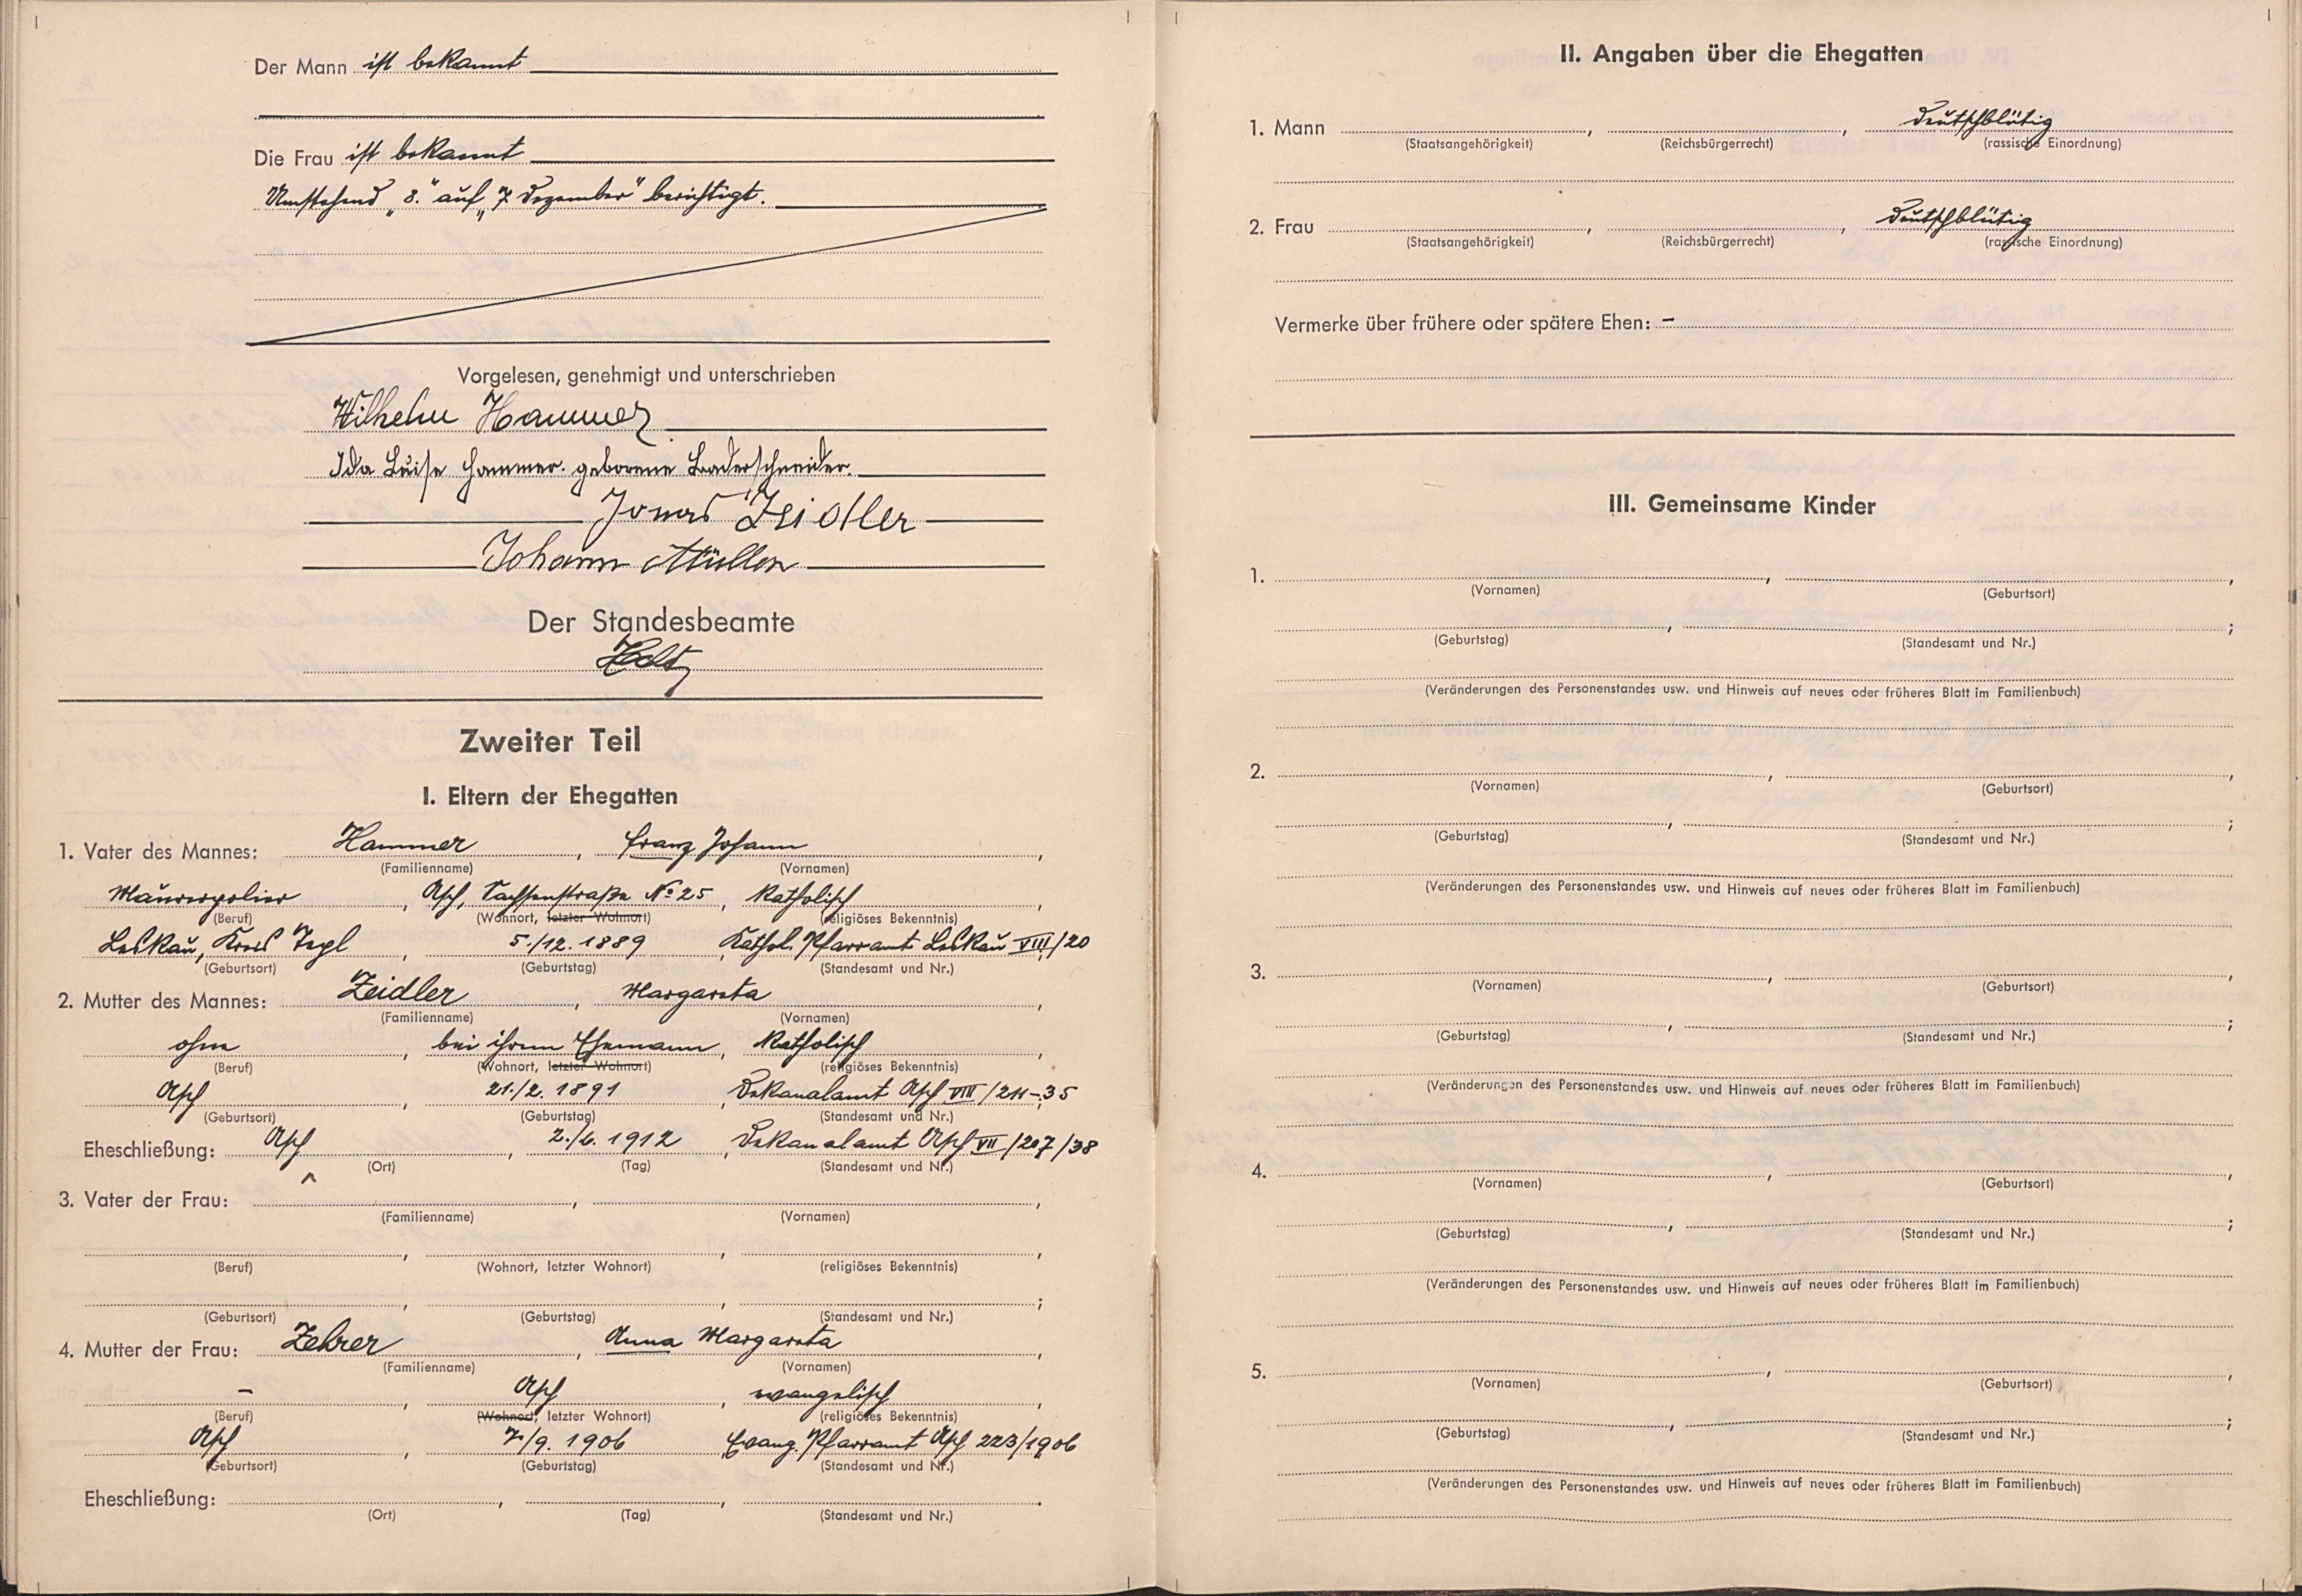 Der Mann ist bekannt
Die Frau ist bekannt
Umstehend „8.“ auf „7. Dezember“ berichtigt.
Vorgelesen, genehmigt und unterschrieben
Wilhelm Hammer
Ida Luise Hammer. geborene Baderschneider.
Jonas Zeidler
Johann Müller
Der Standesbeamte
Zweiter Teil
I. Eltern der Ehegatten
1. Vater des Mannes: Hammer, Franz Johann,
(Familienname) (Vornamen)
Maurerpolier, Asch, Sachsenstraße No 25, katholisch,
(Beruf) (Wohnort, letzter Wohnort) (religiöses Bekenntnis)
Leskau, Kreis Tepl, 5./12. 1889, Kathol. Pfarramt Leskau VIII/20
(Geburtsort) (Geburtstag) (Standesamt und Nr.)
2. Mutter des Mannes: Zeidler, Margareta,
(Familienname) (Vornamen)
ohne, bei ihrem Ehemann, katholisch,
(Beruf) (Wohnort, letzter Wohnort) (religiöses Bekenntnis)
Asch, 21./2. 1891, Dekanalamt Asch VIII/211-35
(Geburtsort) (Geburtstag) (Standesamt und Nr.)
Eheschließung: Asch, 2./6. 1912, Dekanalamt Asch VII/207/38
(Ort) (Tag) (Standesamt und Nr.)
3. Vater der Frau: , ,
(Familienname) (Vornamen)
(Beruf) (Wohnort, letzter Wohnort) (religiöses Bekenntnis)
(Geburtsort) (Geburtstag) (Standesamt und Nr.)
4. Mutter der Frau: Zehrer, Anna Margareta,
(Familienname) (Vornamen)
–, Asch, evangelisch,
(Beruf) (Wohnort, letzter Wohnort) (religiöses Bekenntnis)
Asch, 7./9. 1906, Evang. Pfarramt Asch 223/1906
(Geburtsort) (Geburtstag) (Standesamt und Nr.)
Eheschließung: , ,
(Ort) (Tag) (Standesamt und Nr.)
II. Angaben über die Ehegatten
1. Mann , , deutschblütig
(Staatsangehörigkeit) (Reichsbürgerrecht) (rassische Einordnung)
2. Frau , , deutschblütig
(Staatsangehörigkeit) (Reichsbürgerrecht) (rassische Einordnung)
Vermerke über frühere oder spätere Ehen: –
III. Gemeinsame Kinder
1. , ,
(Vornamen) (Geburtsort)
(Geburtstag) (Standesamt und Nr.)
(Veränderungen des Personenstandes usw. und Hinweis auf neues oder früheres Blatt im Familienbuch)
2. , ,
(Vornamen) (Geburtsort)
(Geburtstag) (Standesamt und Nr.)
(Veränderungen des Personenstandes usw. und Hinweis auf neues oder früheres Blatt im Familienbuch)
3. , ,
(Vornamen) (Geburtsort)
(Geburtstag) (Standesamt und Nr.)
(Veränderungen des Personenstandes usw. und Hinweis auf neues oder früheres Blatt im Familienbuch)
4. , ,
(Vornamen) (Geburtsort)
(Geburtstag) (Standesamt und Nr.)
(Veränderungen des Personenstandes usw. und Hinweis auf neues oder früheres Blatt im Familienbuch)
5. , ,
(Vornamen) (Geburtsort)
(Geburtstag) (Standesamt und Nr.)
(Veränderungen des Personenstandes usw. und Hinweis auf neues oder früheres Blatt im Familienbuch)